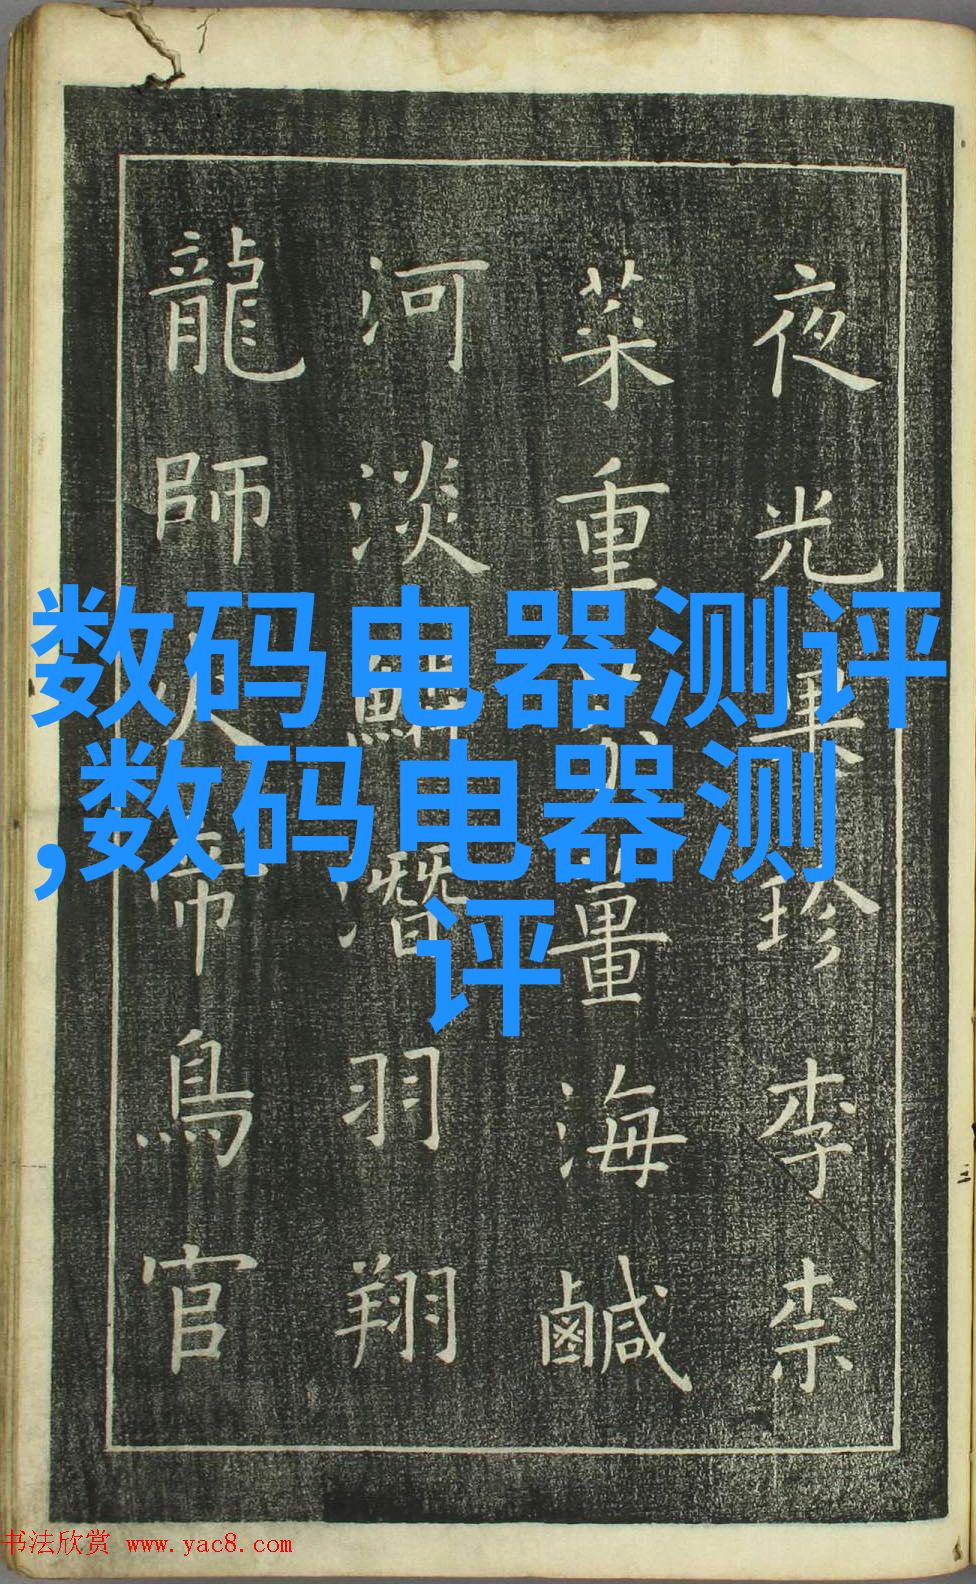 夜光果珍李柰
菜重薑海鹹
河淡潛羽翔
龍師火帝鳥官
数码电器测评
,数码电器测
评
书法欣赏 www.yac8.com